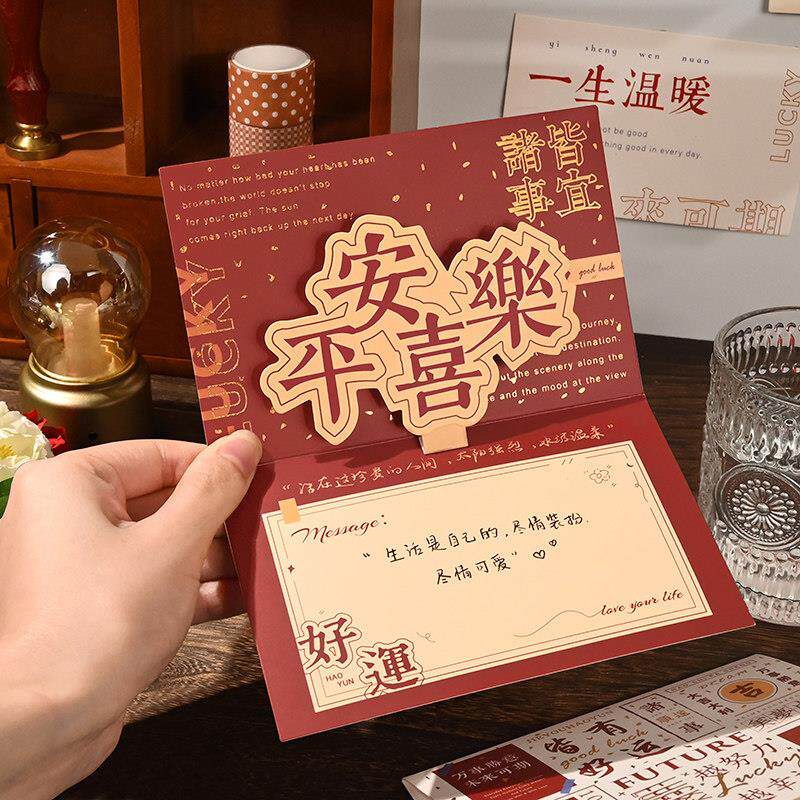 yi sheng wen nuan
一生温暖
LUCKY
not be good
thing good in every day.
來可期
No matter how bad your heart has been
broken, the world doesn't stop
for your grief. The sun
comes right back up the next day
諸事
皆宜
LUCKY
平安喜樂
good luck
journey,
destination.
out the scenery along the
e and the mood at the view
“活在这珍贵的人间，太阳强烈，水波温柔”
Message:
“生活是自己的，尽情装扮.
尽情可爱”
love your life
好運
HAO
YUN
吉
諸事
皆有
好运
good luck
万事勝意
未來可期
FUTURE
越努力
越幸
Lucky